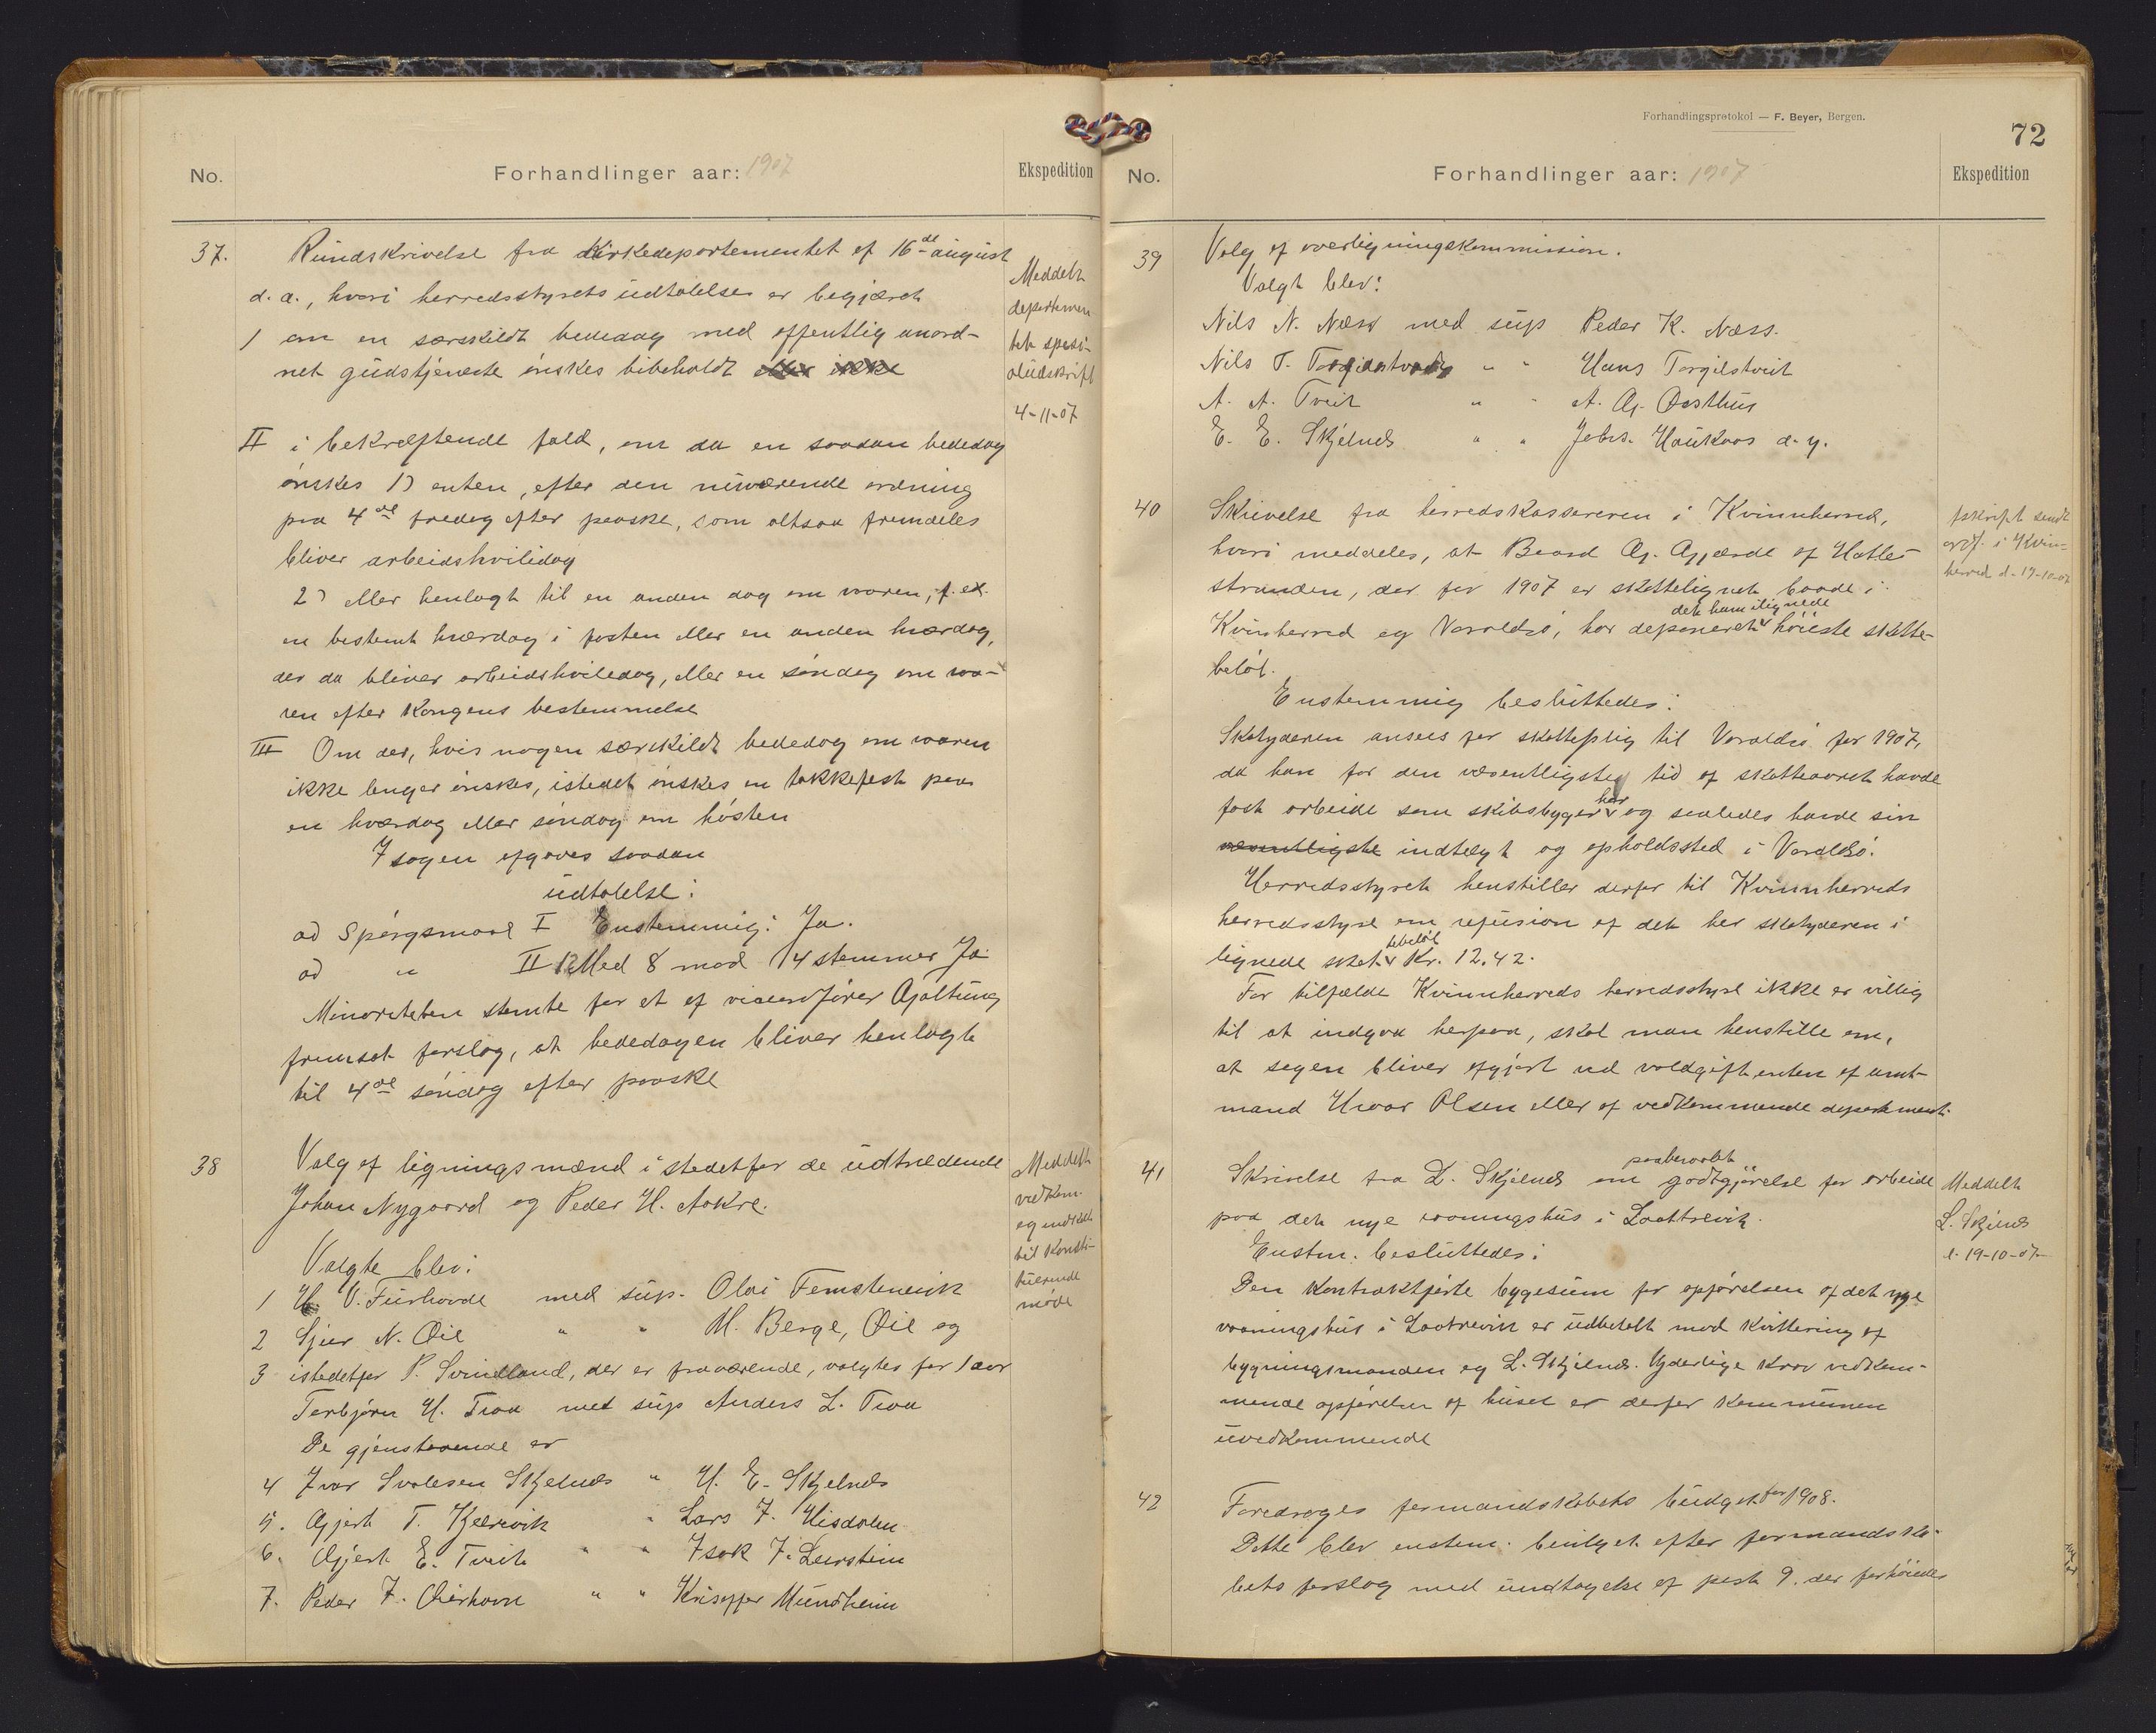 No.
Forhandlinger aar: 1907
Ekspedition
37. Rundskrivelse fra Kirkedepartementet af 16de august
d. a., hvori herredsstyrets udtalelse er begjæret
1 om en særskildt bededag med offentlig anord-
net gudstjeneste ønskes bibeholdt eller ikke
II i bekræftende fald, om da en saadan bededag
ønskes 1) enten, efter den nuværende ordning
paa 4de fredag efter paaske, som altsaa fremdeles
bliver arbeidshviledag
2) eller henlagt til en anden dag om vaaren, f. ex.
en bestemt hverdag i fasten eller en anden hverdag,
der da bliver arbeidshviledag, eller en søndag om vaa-
ren efter Kongens bestemmelse
III Om der, hvis nogen særskildt bededag om vaaren
ikke lenger ønskes, istedet ønskes en takkefest paa
en hverdag eller søndag om høsten
I sagen afgaves saadan
udtalelse:
ad Spørgsmaal I Enstemmig: Ja.
ad " II 1) Med 8 mod 4 stemmer Ja
Minoriteten stemte for et af viceordfører Gjøltung
fremsat forslag, at bededagen bliver henlagt
til 4de søndag efter paaske
Meddelt
departemen
tet speci-
aludskrift
4-11-07
38 Valg af ligningsmænd istedetfor de udtrædende
Johan Nygaard og Peder H. Aakre.
Valgte blev:
1 H. V. Furhovde med sup. Olai Femsteinevik
2 Sjur N. Øie " " M. Berge, Øie og
3 istedetfor P. Svindland, der er fraværende, valgtes for 1 aar
Torbjørn H. Tvaa med sup Anders L. Tvaa
De gjenstaaende er
4 Ivar Svalesen Skjelnes " H. E. Skjelnes
5. Gjert T. Kjærevik " Lars J. Hisdalen
6. Gjert E. Tveit " " Isak J. Leirstein
7. Peder J. Øierhavn " " Kristoffer Mundheim
Meddelt
vedkom.
og indkaldt
til konsti-
tuerende
møde
Forhandlingsprotokol — F. Beyer, Bergen.
72
No.
Forhandlinger aar: 1907
Ekspedition
39 Valg af overligningskommission.
Valgt blev:
Nils N. Næss med sup Peder K. Næss.
Nils T. Torgilstveit " " Hans Torgilstveit
A. A. Tveit " " A. Aj. Øosthus
E. E. Skjelnes " " Johs. Haukaas d. y.
40 Skrivelse fra herredskassereren i Kvinnherred,
hvori meddeles, at Baard Aj. Gjærde af Hatle-
stranden, der for 1907 er skattelignet baade i
Kvinherred og Varaldsø, har deponeret det ham ilignede høieste skatte-
beløb.
Enstemmig besluttedes:
Skatyderen ansees for skattepligtig til Varaldsø for 1907,
da han for den væsentligste tid af skatteaaret havde
fast arbeide som skibsbygger her og saaledes havde sin
væsentligste indtægt og opholdssted i Varaldsø.
Herredsstyret henstiller derfor til Kvinnherreds
herredsstyre om refusion af det her skatyderen i
lignede skattebeløb Kr. 12.42.
For tilfælde Kvinnherreds herredsstyre ikke er villig
til at indgaa herpaa, skal man henstille om,
at sagen bliver afgjort ved voldgift enten af amt-
mand Hroar Olsen eller af vedkommende departement.
fskrift sendt
ordf. i Kvin-
herred d. 19-10-07
41 Skrivelse fra L. Skjelnes om paaberaabt godtgjørelse for arbeide
paa det nye vaaningshus i Laattrevik.
Enstm. besluttedes:
Den kontraktførte byggesum for opførelsen af det nye
vaaningshus i Laatrevik er udbetalt mod kvittering af
bygningsmanden og L. Skjelnes. Yderlige krav vedkom-
mende opførelsen af huset er derfor kommunen
uvedkommende
Meddelt
L. Skjelnes
d. 19-10-07
42 Foredroges formandskabets budget for 1908.
Dette blev enstem. bevilget efter formandska-
bets forslag med undtagelse af post 9. der forhøiedes